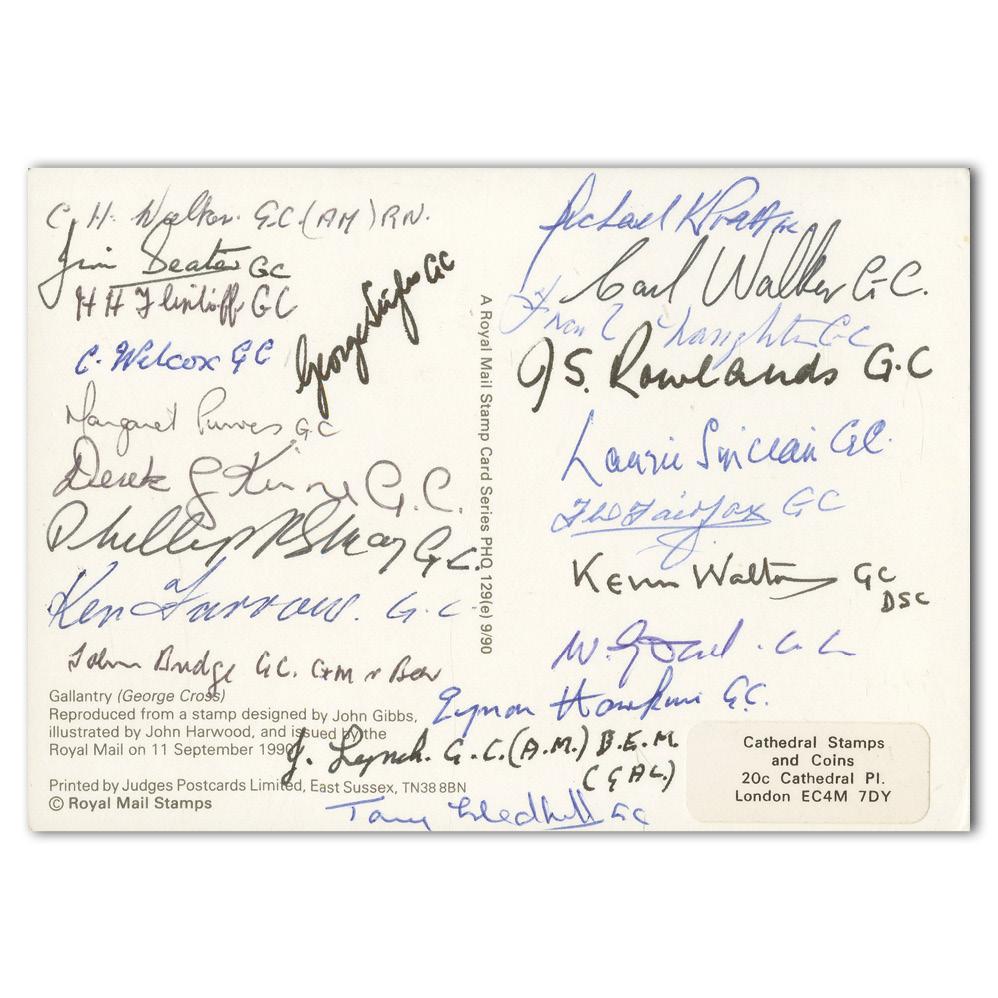 C. H. Walker. G.C (AM) RN.
Jim Beaton GC
H H Flintoff GC
George GC
C. Wilcox GC
Margaret Purves GC
Derek G Kinne G.C.
G.C.
Ken Farrow. G.C
John Bridge GC. GM & Bar
Gallantry (George Cross)
Reproduced from a stamp designed by John Gibbs,
illustrated by John Harwood, and issued by the
Royal Mail on 11 September 1990
Printed by Judges Postcards Limited, East Sussex, TN38 8BN
© Royal Mail Stamps
A Royal Mail Stamp Card Series PHQ 129(e) 9/90
Michael K Pratt GC
Carl Walker GC.
Naughton GC
J S. Rowlands G.C
Laurie Sinclair GC.
Fairfax GC
Kevin Walton GC
DSC
W. G.C
Eynon Hawkins G.C.
J. Lynch. G.C. (A.M.) B.E.M.
(GAL.)
Tony Gledhill GC
Cathedral Stamps
and Coins
20c Cathedral Pl.
London EC4M 7DY